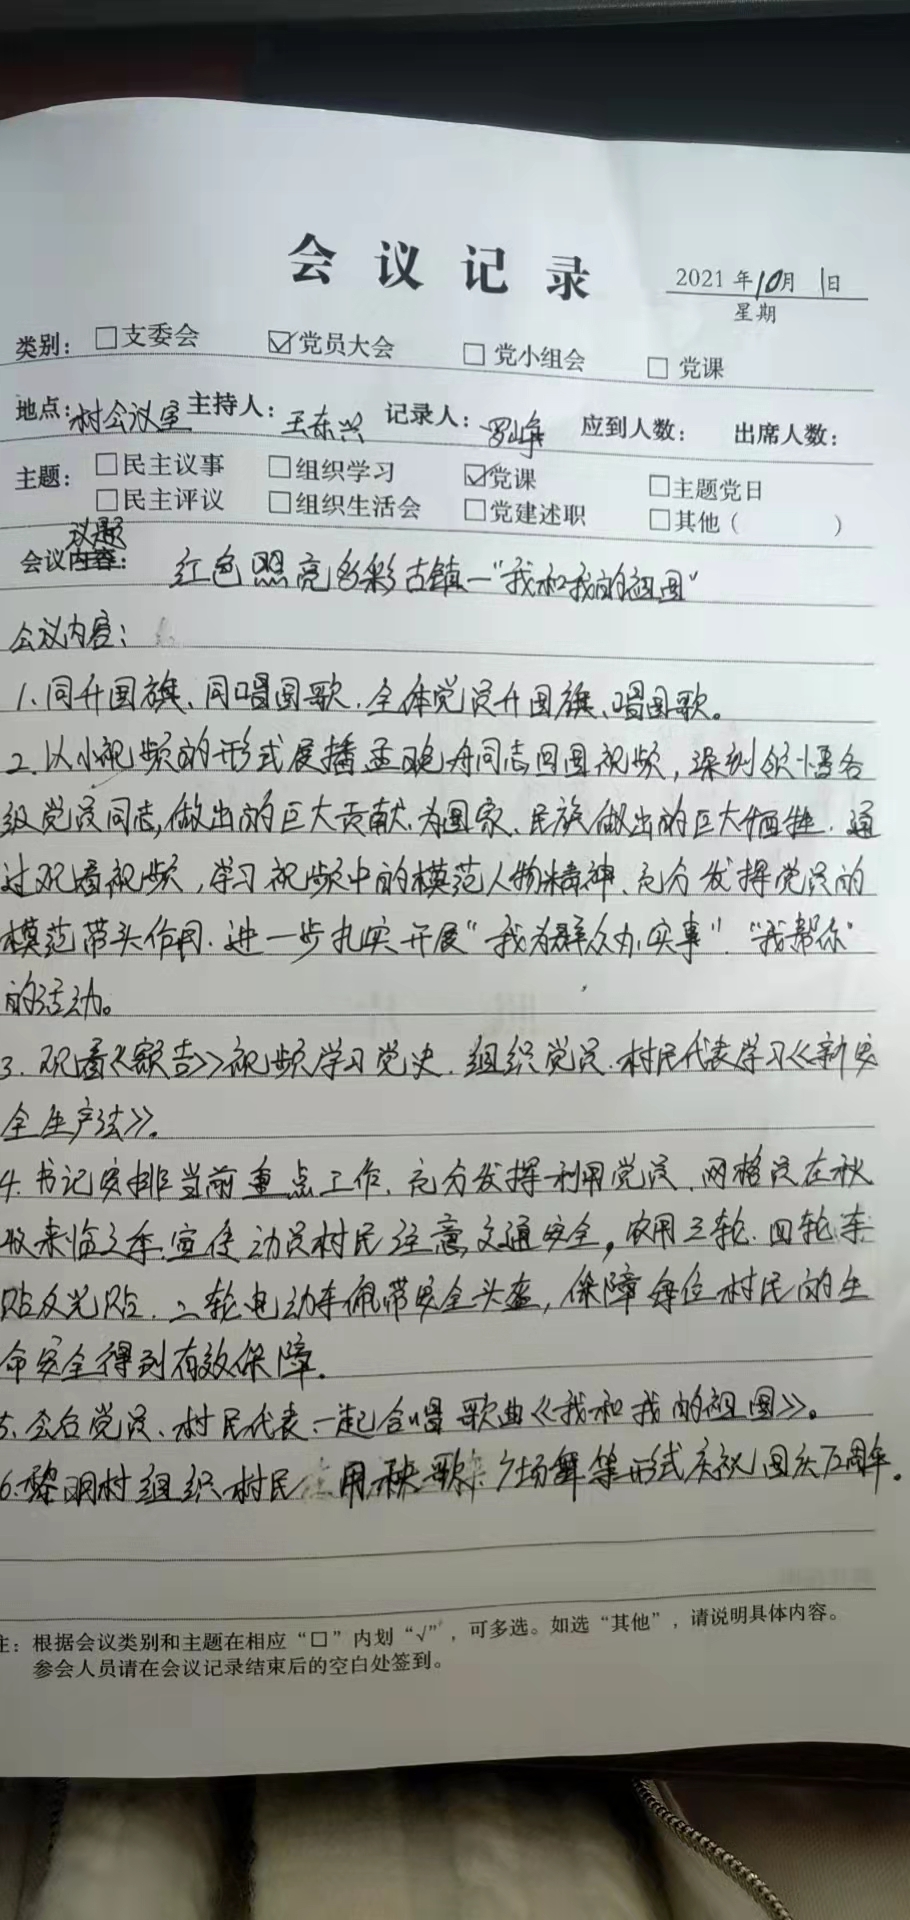 会议记录
2021年10月1日
星期
类别：□支委会 ☑党员大会 □党小组会 □党课
地点：村会议室 主持人：王东兴 记录人：罗峰 应到人数： 出席人数：
主题：□民主议事 □组织学习 ☑党课 □主题党日
□民主评议 □组织生活会 □党建述职 □其他（ ）
议题
会议内容： 红色照亮多彩古镇—“我和我的祖国”
会议内容：
1.同升国旗、同唱国歌.全体党员升国旗、唱国歌。
2.以小视频的形式展播孟晚舟同志回国视频，深刻领悟各
级党员同志,做出的巨大贡献.为国家、民族做出的巨大牺牲.通
过观看视频,学习视频中的模范人物精神、充分发挥党员的
模范带头作用.进一步扎实开展“我为群众办实事”.“我帮你”
的活动。
3.观看《 告》视频学习党史.组织党员.村民代表学习《新安
全生产法》。
4.书记安排当前重点工作、充分发挥利用党员、网格员在秋
收来临之季.宣传动员村民注意交通安全，农用三轮.四轮车
贴反光贴.二轮电动车佩带安全头盔，保障每位村民的生
命安全得到有效保障.
5.会后党员、村民代表一起合唱歌曲《我和我的祖国》。
6.黎明村组织村民 用秧歌.广场舞等形式庆祝国庆72周年.
注：根据会议类别和主题在相应“□”内划“√”，可多选。如选“其他”，请说明具体内容。
参会人员请在会议记录结束后的空白处签到。